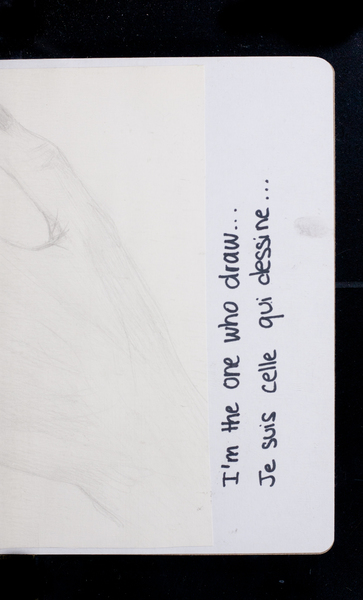 I'm the one who draw...
Je suis celle qui dessine...